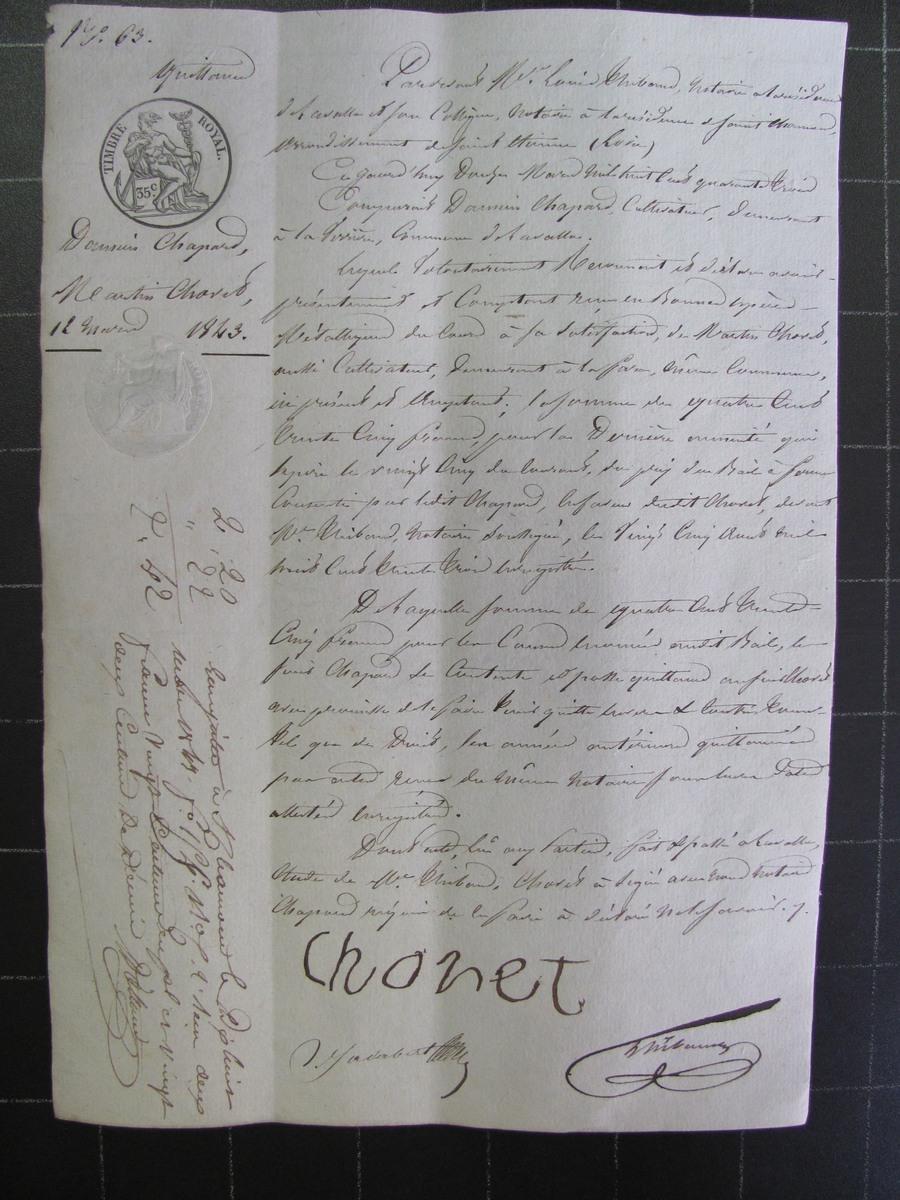 No. 63.
Quittance
TIMBRE ROYAL.
35c
Damien Chapard,
Martin Chovet,
12 mars 1843.
Pardevant Me. Louis Thibaud, Notaire à la résidence
de Lavalla et son Collègue, Notaire à la résidence de Saint Chamond,
arrondissement de Saint Etienne (Loire)
Ce jourd'huy Douze Mars mil huit Cent quarante trois
Comparait Damien Chapard, Cultivateur, demeurant
à la Commune de Lavalla.
Lequel Volontairement Reconnait et déclare avoir
présentement et Comptant reçu en Bonnes espèces
Métalliques du Cours à sa Satisfaction, de Martin Chovet,
aussi Cultivateur, demeurant à la même Commune,
ici présent et acceptant, la somme de quatre Cent
trente Cinq francs, pour la Dernière annuité qui
le vingt Cinq du Courant, du prix du Bail à ferme
Consenti par ledit Chapard, en faveur dudit Chovet, devant
Me. Thibaud, Notaire Soussigné, le Vingt Cinq Août mil
huit Cent trente trois Enregistré.
De laquelle somme de quatre Cent trente
Cinq francs pour les Causes énoncées audit Bail, le
Chapard Se Contente et passe quittance Chovet
avec promesse de le faire tenir quitte envers & Contre tous
tel que de Droit, les années antérieures quittancées
par actes reçus du même Notaire sous leurs Dates
attestées enregistrés.
Dont acte, Lu aux Parties, fait & passé à Lavalla,
étude de Me. Thibaud, Chovet a Signé avec nous notaires
Chapard requis de le faire a déclaré ne le Savoir.
Chovet
Thibaud
2, 20
" 22
2, 42
Enregistré à St Chamond le
reçu deux
francs vingt Centimes et vingt
deux Centimes de Décime